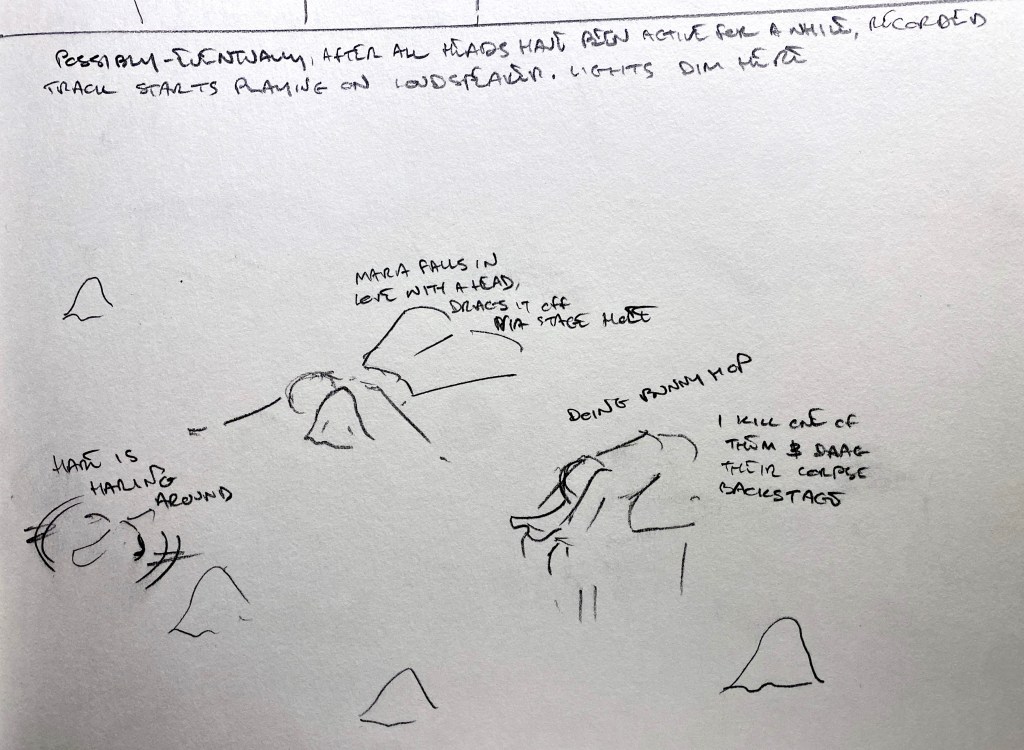 POSSIBLY-EVENTUALLY, AFTER ALL HEADS HAVE BEEN ACTIVE FOR A WHILE, RECORDED
TRACK STARTS PLAYING ON LOUDSPEAKER. LIGHTS DIM HERE
MARA FALLS IN
LOVE WITH A HEAD,
DRAGS IT OFF
VIA STAGE HOLE
DOING BUNNY HOP
I KILL ONE OF
THEM & DRAG
THEIR CORPSE
BACKSTAGE
HARE IS
HARING
AROUND